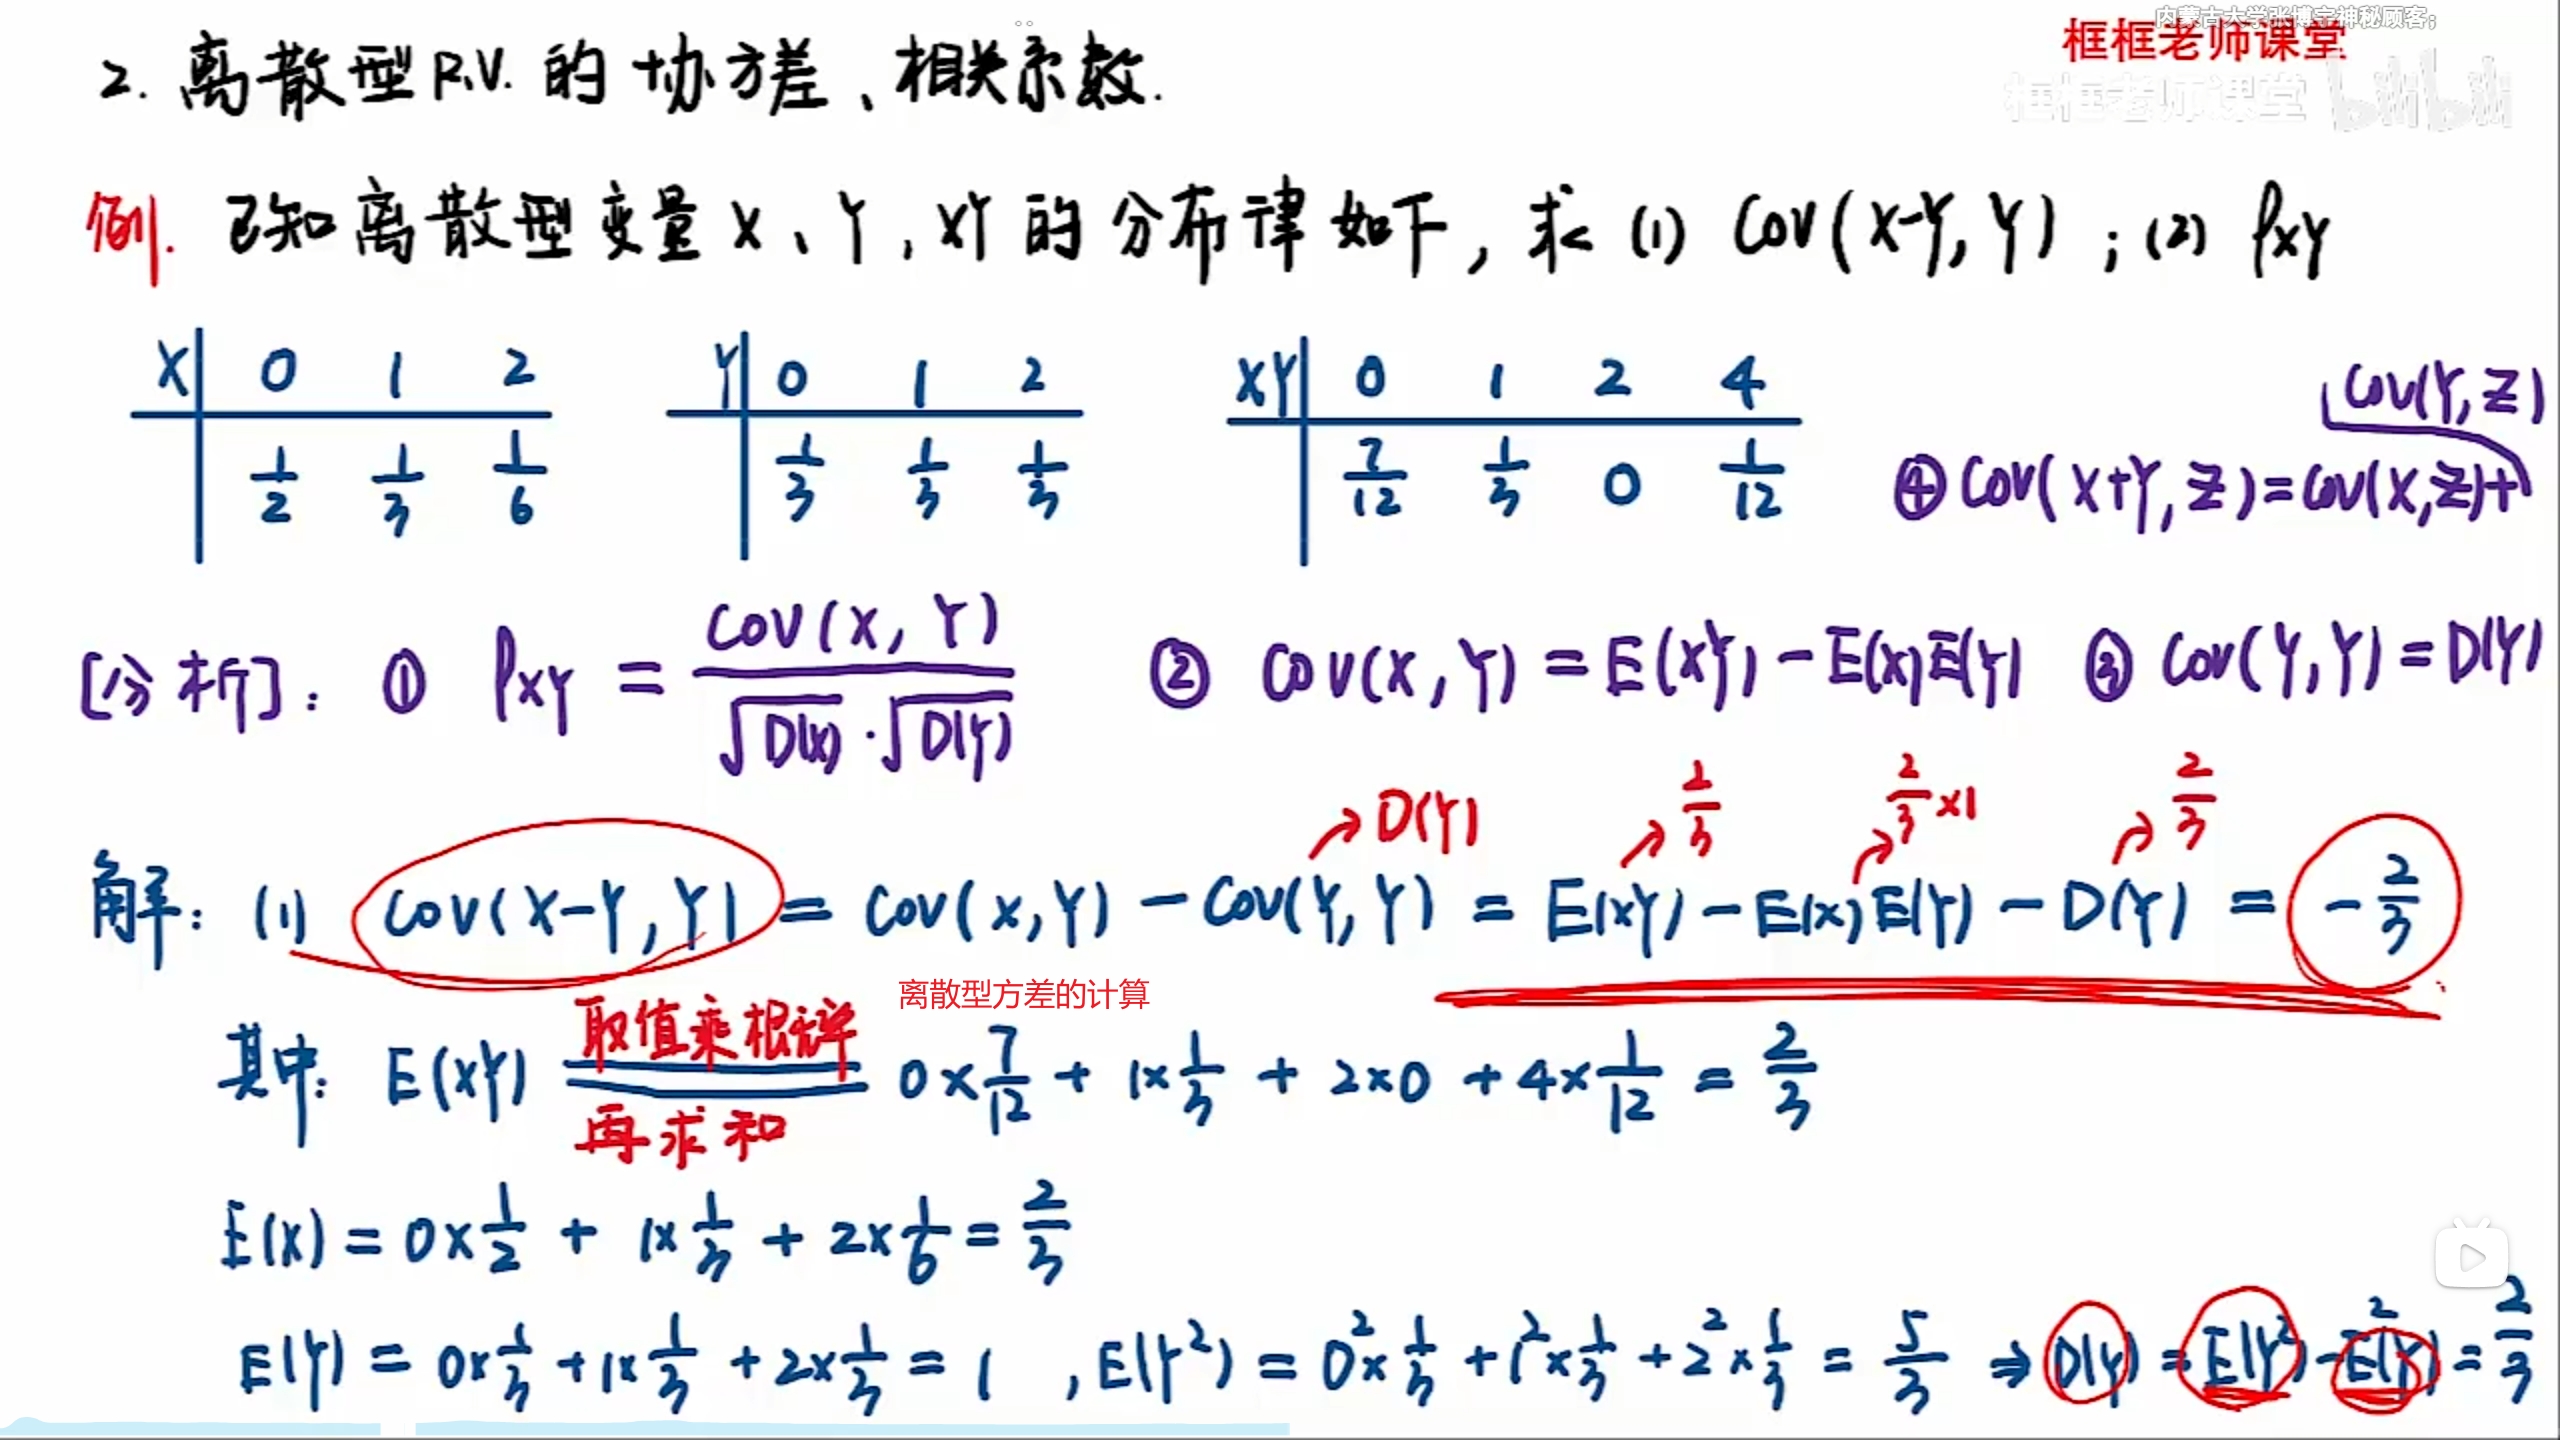 内蒙古大学张博宇神秘顾客;
框框老师课堂
框框老师课堂 bilibili
2. 离散型 R.V. 的协方差、相关系数.
例. 已知离散型变量 X、Y, XY 的分布律如下, 求 (1) Cov(X-Y, Y) ; (2) ρXY
X 0 1 2
1/2 1/3 1/6
Y 0 1 2
1/3 1/3 1/3
XY 0 1 2 4
7/12 1/3 0 1/12
④ Cov(X+Y, Z) = Cov(X,Z)+
Cov(Y,Z)
[分析]: ① ρXY = Cov(X, Y) / √D(X) · √D(Y) ② Cov(X, Y) = E(XY) - E(X)E(Y) ③ Cov(Y, Y) = D(Y)
→ D(Y) → 2/3 → 2/3 ×1 → 2/3
解: (1) Cov(X-Y, Y) = Cov(X, Y) - Cov(Y, Y) = E(XY) - E(X)E(Y) - D(Y) = -2/3
离散型方差的计算
取值乘概率
其中: E(XY) = 0×7/12 + 1×1/3 + 2×0 + 4×1/12 = 2/3
再求和
E(X) = 0×1/2 + 1×1/3 + 2×1/6 = 2/3
E(Y) = 0×1/3 + 1×1/3 + 2×1/3 = 1 , E(Y²) = 0²×1/3 + 1²×1/3 + 2²×1/3 = 5/3 ⇒ D(Y) = E(Y²) - E²(Y) = 2/3